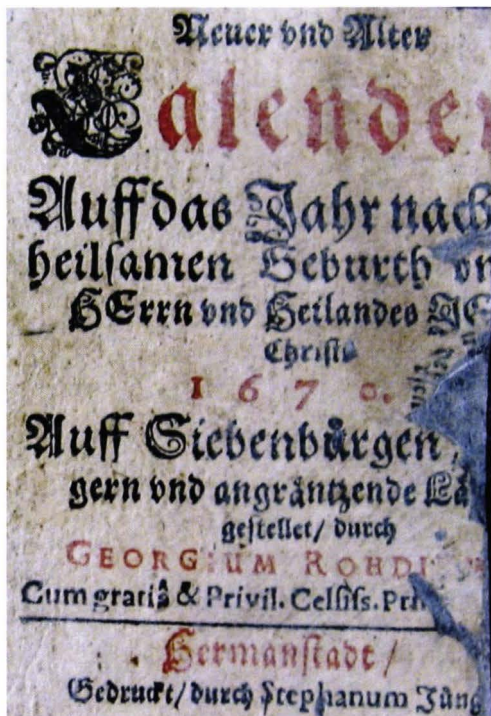 Neuer vnd Alter
Calender
Auff das Jahr nach
heilsamen Geburth vn
HErrn vnd Heilandes JE
Christi
1670.
Auff Siebenbůrgen,
gern vnd angråntzende Lå
gestellet/ durch
GEORGIUM ROHDI
Cum gratiâ & Privil. Celsiss. Pri
Hermanstadt/
Gedruckt/ durch Stephanum Jüng